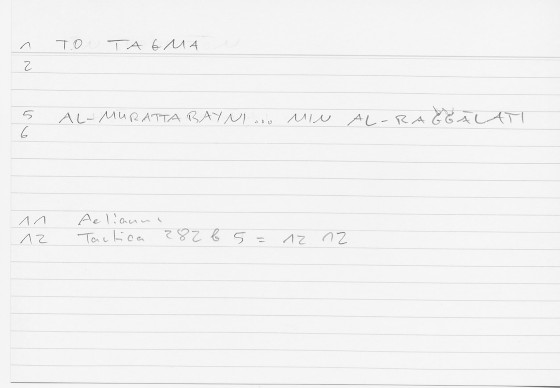 1 TO TAGMA
2
5 AL-MURATTABAYNI... MIN AL-RAǦǦĀLATI
6
11 Aelianus
12 Tactica 282 b 5 = 12 12